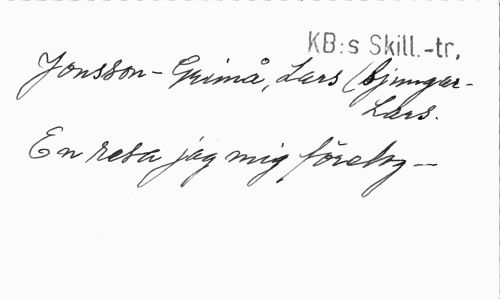 KB:s Skill.-tr.
Jonsson-Grimå, Lars (Ljungar-
Lars.
En resa jag migföretog --